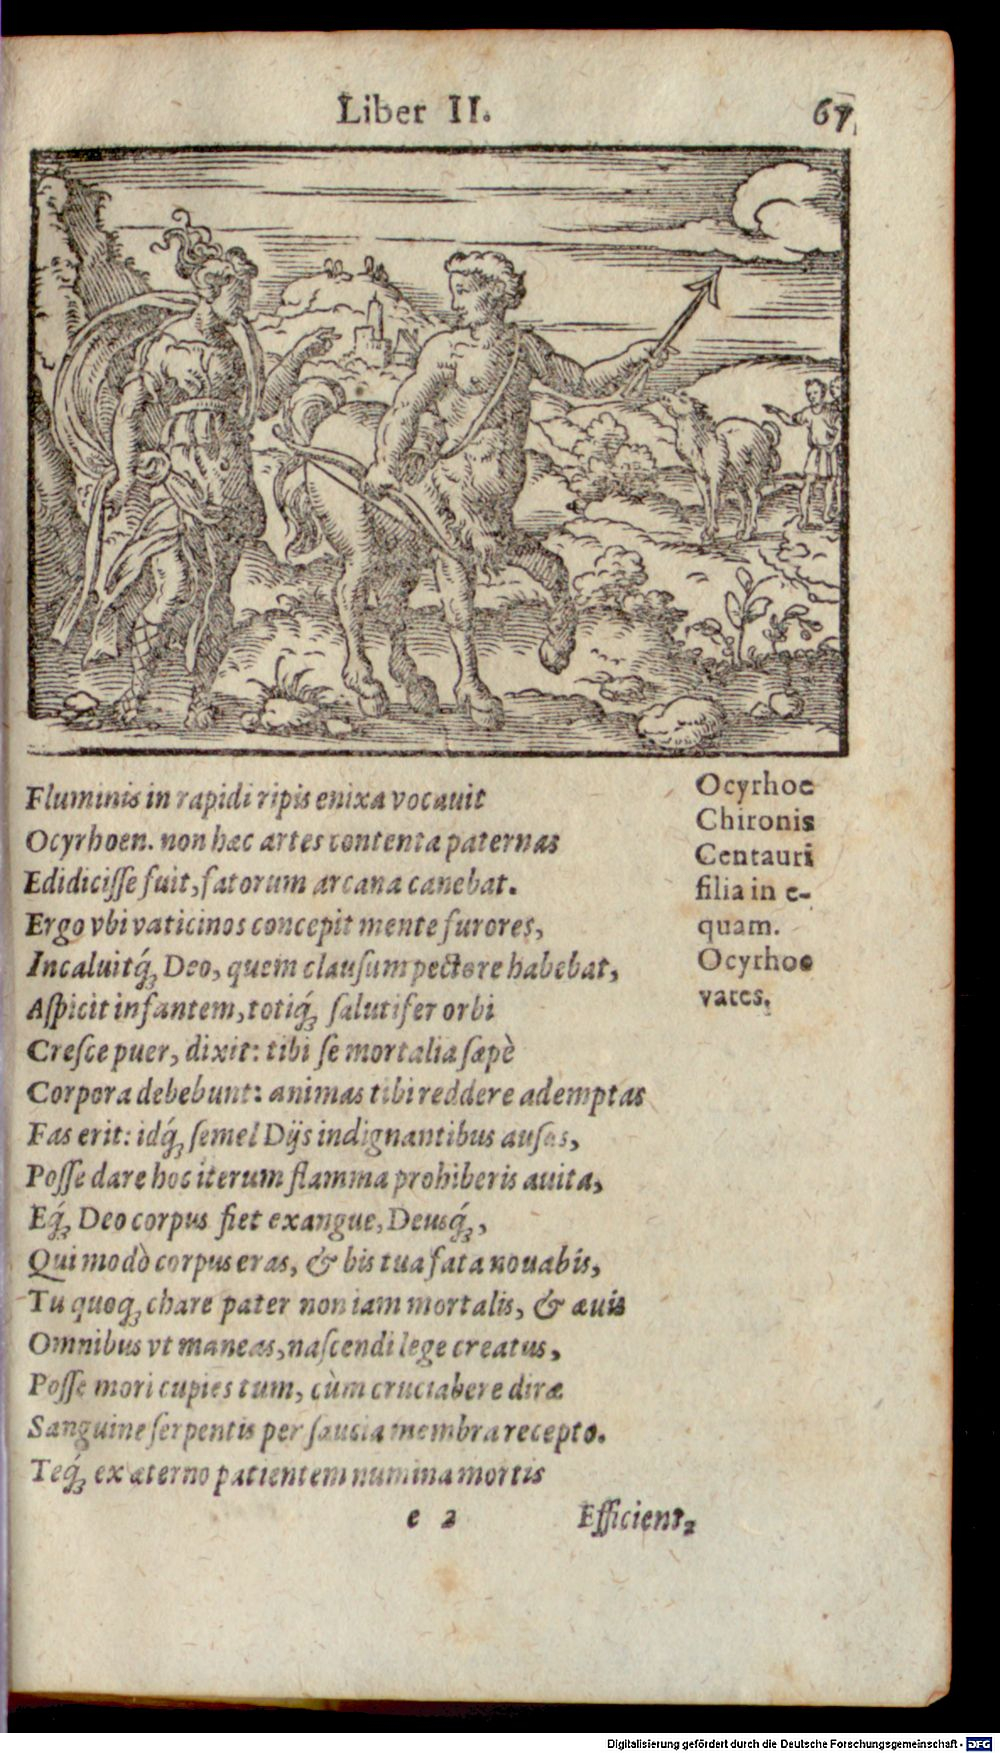 Liber II.
67
Fluminis in rapidi ripis enixa vocauit
Ocyrhoen. non hæc artes contenta paternas
Edidicisse fuit, fatorum arcana canebat.
Ergo vbi vaticinos concepit mente furores,
Incaluitq́ꝫ Deo, quem clausum pectore habebat,
Aspicit infantem, totiq́ꝫ salutifer orbi
Cresce puer, dixit: tibi se mortalia sæpè
Corpora debebunt: animas tibi reddere ademptas
Fas erit: idq́ꝫ semel Dijs indignantibus ausus,
Posse dare hoc iterum flamma prohiberis auita,
Eq́ꝫ Deo corpus fiet exangue, Deusq́ꝫ,
Qui modò corpus eras, & bis tua fata nouabis,
Tu quoqꝫ chare pater non iam mortalis, & æuis
Omnibus vt maneas, nascendi lege creatus,
Posse mori cupies tum, cùm cruciabere diræ
Sanguine serpentis per saucia membra recepto.
Teq́ꝫ ex æterno patientem numina mortis
Ocyrhoe
Chironis
Centauri
filia in e-
quam.
Ocyrhoe
vates.
e 2 Efficient,
Digitalisierung gefördert durch die Deutsche Forschungsgemeinschaft - DFG